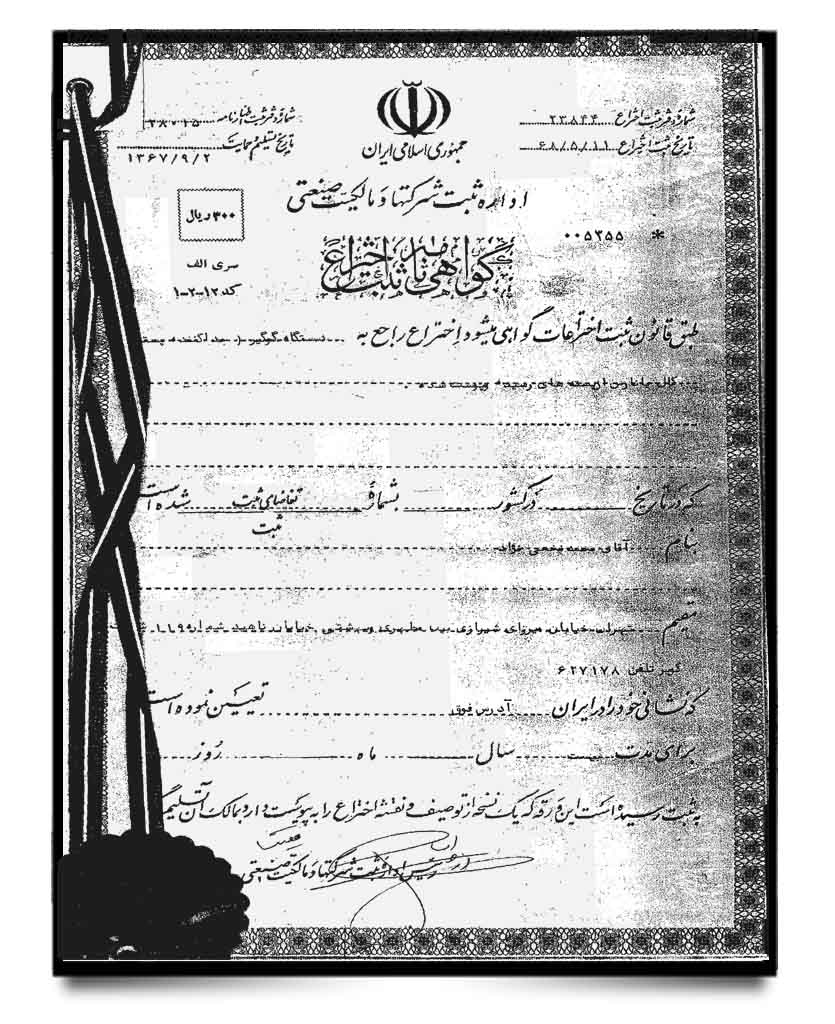 شماره و تاریخ ثبت اختراع ۲۳۸۴۴
تاریخ ثبت اختراع ۶۸/۵/۱۱
جمهوری اسلامی ایران
شماره ثبت اظهارنامه ۲۸۰۱۵
تاریخ تسلیم و حمایت ۱۳۶۷/۹/۲
اداره ثبت شرکتها و مالکیت صنعتی
۳۰۰ ریال
* ۰۰۵۳۵۵
گواهی نامه ثبت اختراع
سری الف
کد ۱۲-۲-۱
طبق قانون ثبت اختراعات گواهی میشود اختراع راجع به دستگاه
شده
که در تاریخ در کشور بشماره تقاضای ثبت شده است
ثبت
بنام آقای محمد
مقیم تهران خیابان میرزای شیرازی بین مطهری و بهشتی خیابان ناهید شماره
تلفن ۶۲۷۱۷۸
که نشانی خود را در ایران آدرس فوق تعیین نموده است
برای مدت سال ماه روز
به ثبت رسیده است این ورقه که یک نسخه از توصیف و نقشه اختراع را به پیوست دارد بمالک آن تسلیم
رئیس اداره ثبت شرکتها و مالکیت صنعتی